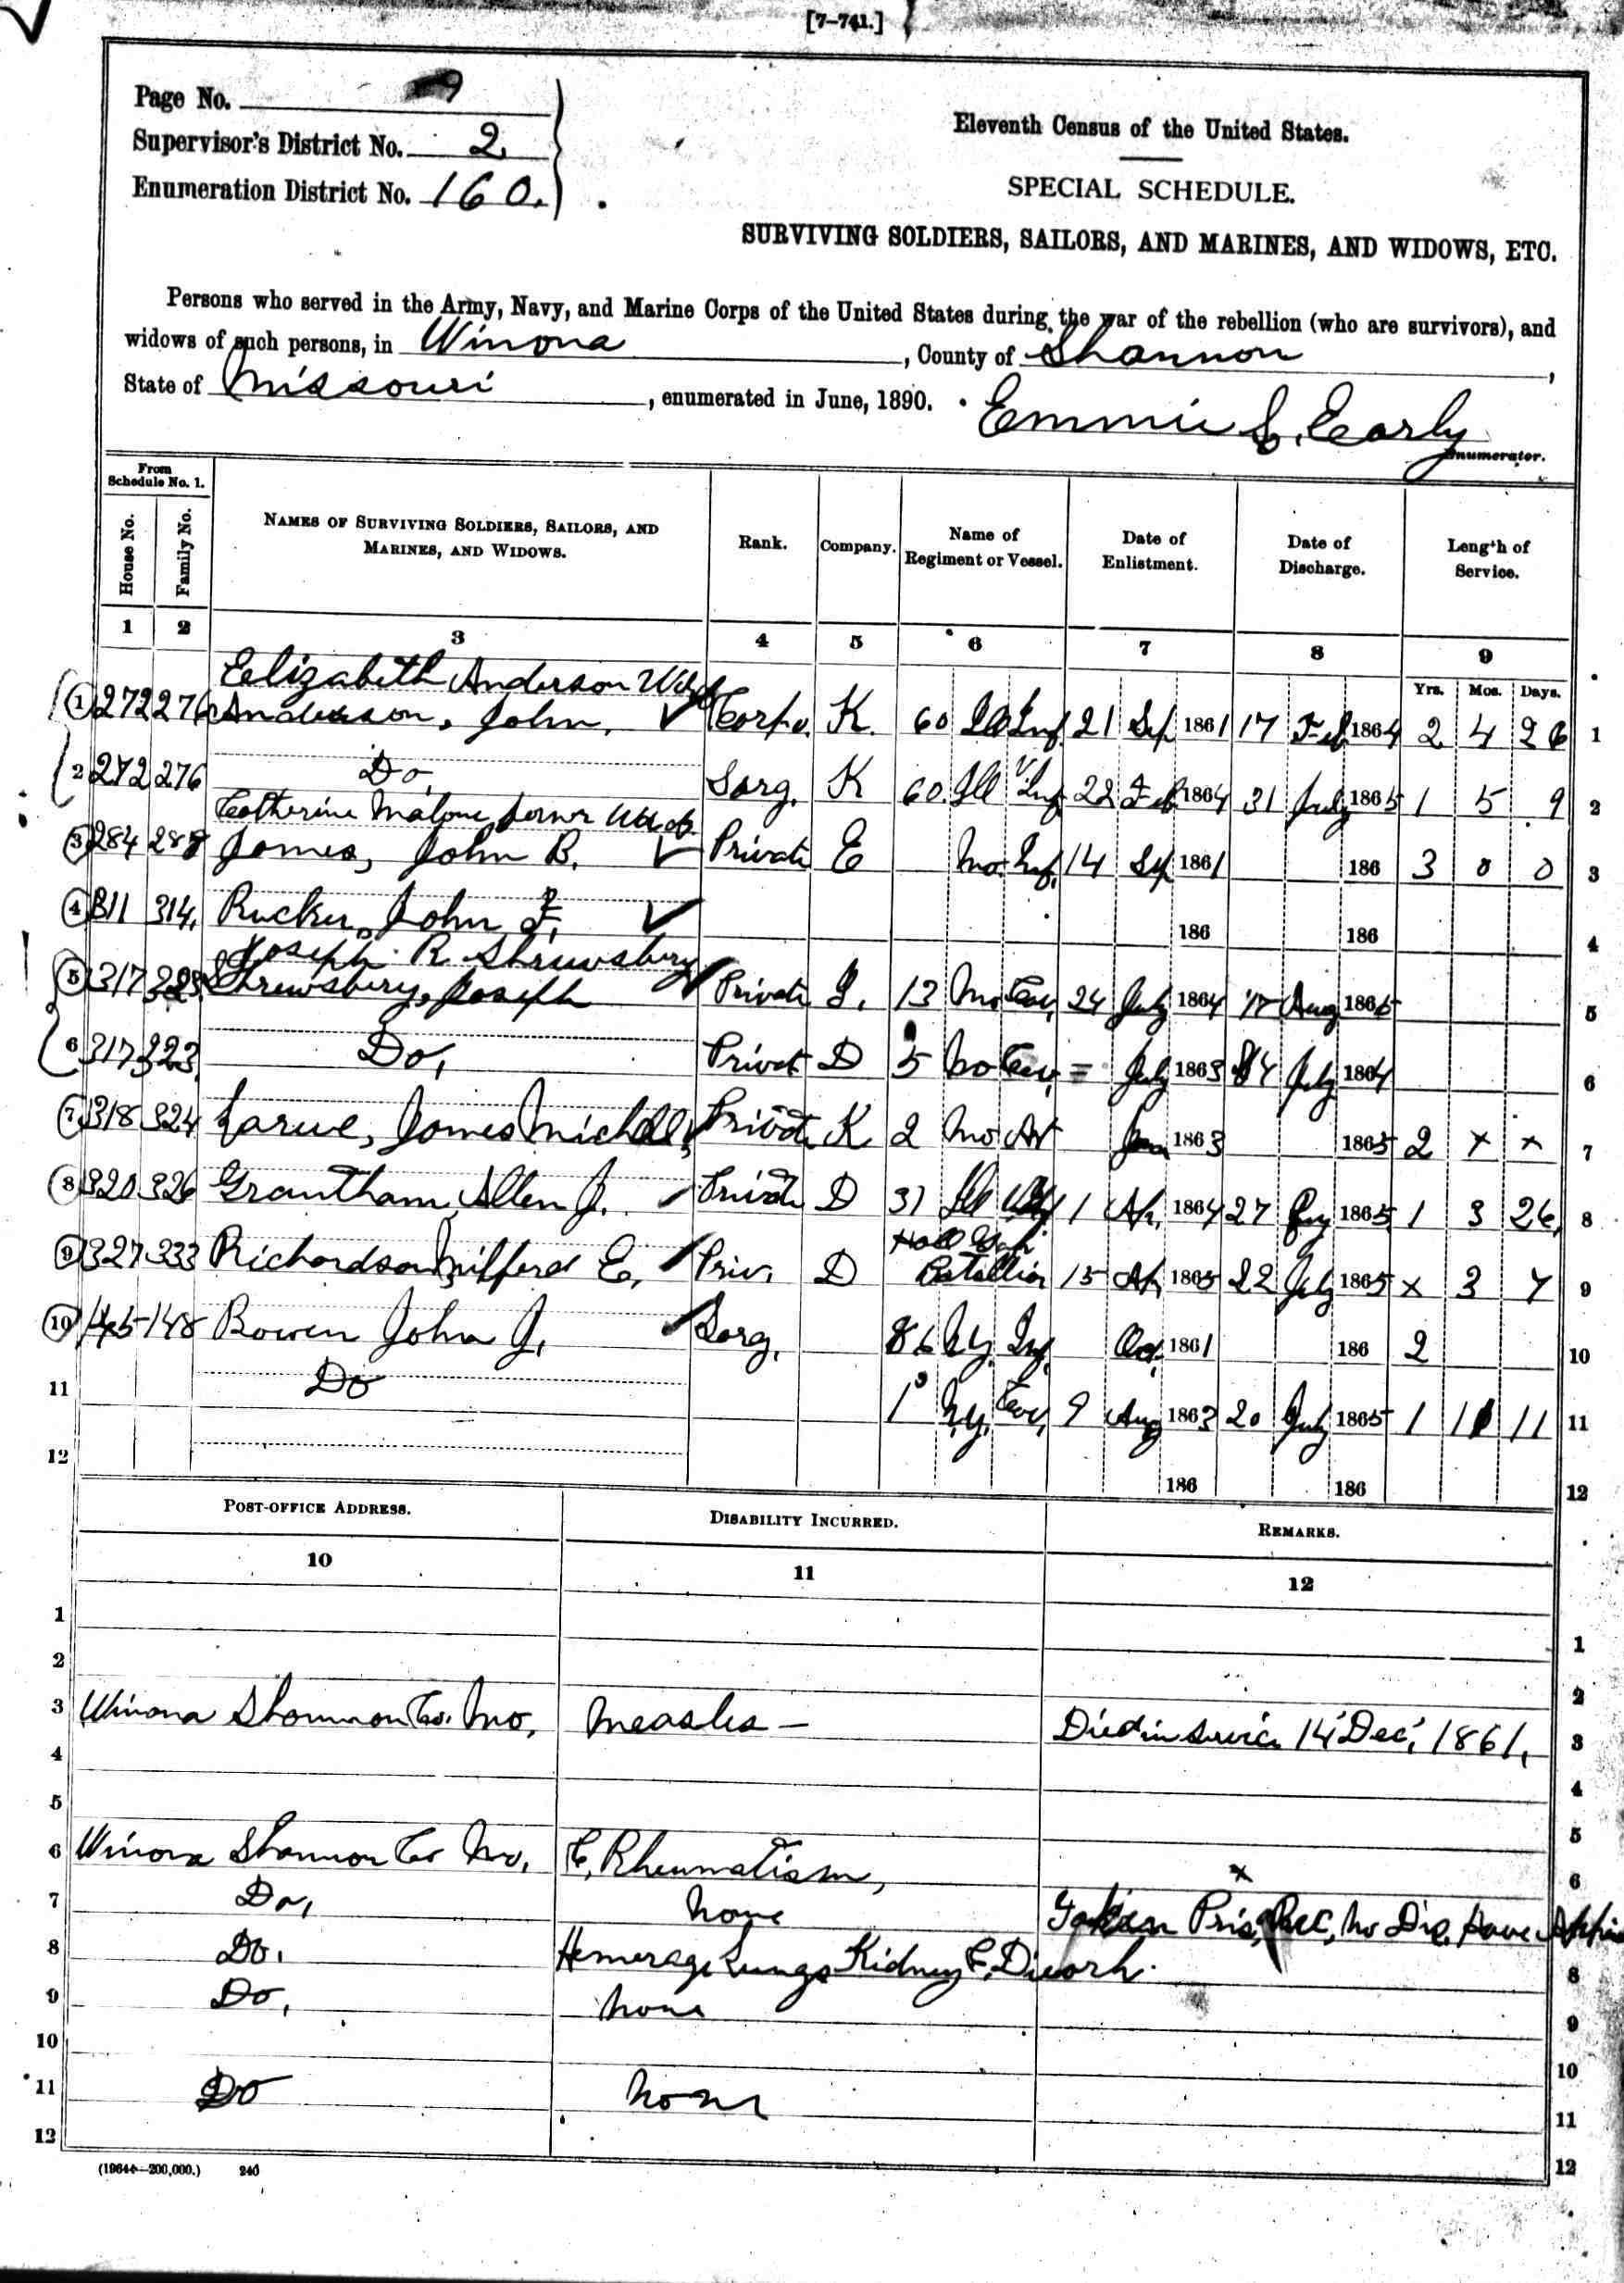 [7-741.]
Page No. 9
Supervisor's District No. 2
Enumeration District No. 160.
Eleventh Census of the United States.
SPECIAL SCHEDULE.
SURVIVING SOLDIERS, SAILORS, AND MARINES, AND WIDOWS, ETC.
Persons who served in the Army, Navy, and Marine Corps of the United States during the war of the rebellion (who are survivors), and
widows of such persons, in Winona, County of Shannon,
State of Missouri, enumerated in June, 1890. Emmie L. Early
Enumerator.
From Schedule No. 1.
House No. Family No. NAMES OF SURVIVING SOLDIERS, SAILORS, AND MARINES, AND WIDOWS. Rank. Company. Name of Regiment or Vessel. Date of Enlistment. Date of Discharge. Length of Service.
1 2 3 4 5 6 7 8 9
Yrs. Mos. Days.
Elizabeth Anderson Wid of
1 272 276 Anderson, John, Corpo. K. 60 Ill Inf 21 Sep 1861 17 Feb 1864 2 4 26 1
2 272 276 Do, Sarg. K 60. Ill V. Inf 22 Feb 1864 31 July 1865 1 5 9 2
Catherine Malone former Wid of
3 284 288 James, John B. Private E Mo. Inf, 14 Sep 1861 186 3 0 0 3
4 311 314, Rucker, John F, 186 186 4
Joseph R Shrewsbury
5 317 323 Shrewsbury, Joseph Private I. 13 Mo Cav, 24 July 1864 17 Aug 1865 5
6 317 323 Do, Privat D 5 Mo Cav, = July 1863 4 July 1864 6
7 318 324 Larue, James Michell, Private K 2 Mo Art Jan 1863 1865 2 x x 7
8 320 326 Grantham, Allen J. Private D 31 Ill 1 Ap, 1864 27 1865 1 3 26, 8
9 327 333 Richardson, Milferd E, Priv. D Batallion 15 Ap, 1865 22 July 1865 x 3 7 9
10 145 148 Bowen John J, Sarg, 86 N.Y. Inf. Oct, 1861 186 2 10
11 Do 1 N.Y. Cav, 9 Aug 1863 20 July 1865 1 11 11 11
12 186 186 12
POST-OFFICE ADDRESS. DISABILITY INCURRED. REMARKS.
10 11 12
1 1
2 2
3 Winona Shannon Co. Mo, Measles – Died in service 14 Dec, 1861, 3
4 4
5 5
6 Winona Shannon Co Mo, C, Rheumatism, x 6
7 Do, None Taken Pris, No Dis, have
8 Do. Hemerage Lungs Kidney C, Diearh. 8
9 Do, None 9
10 10
11 Do None 11
12 12
(19644—200,000.) 240